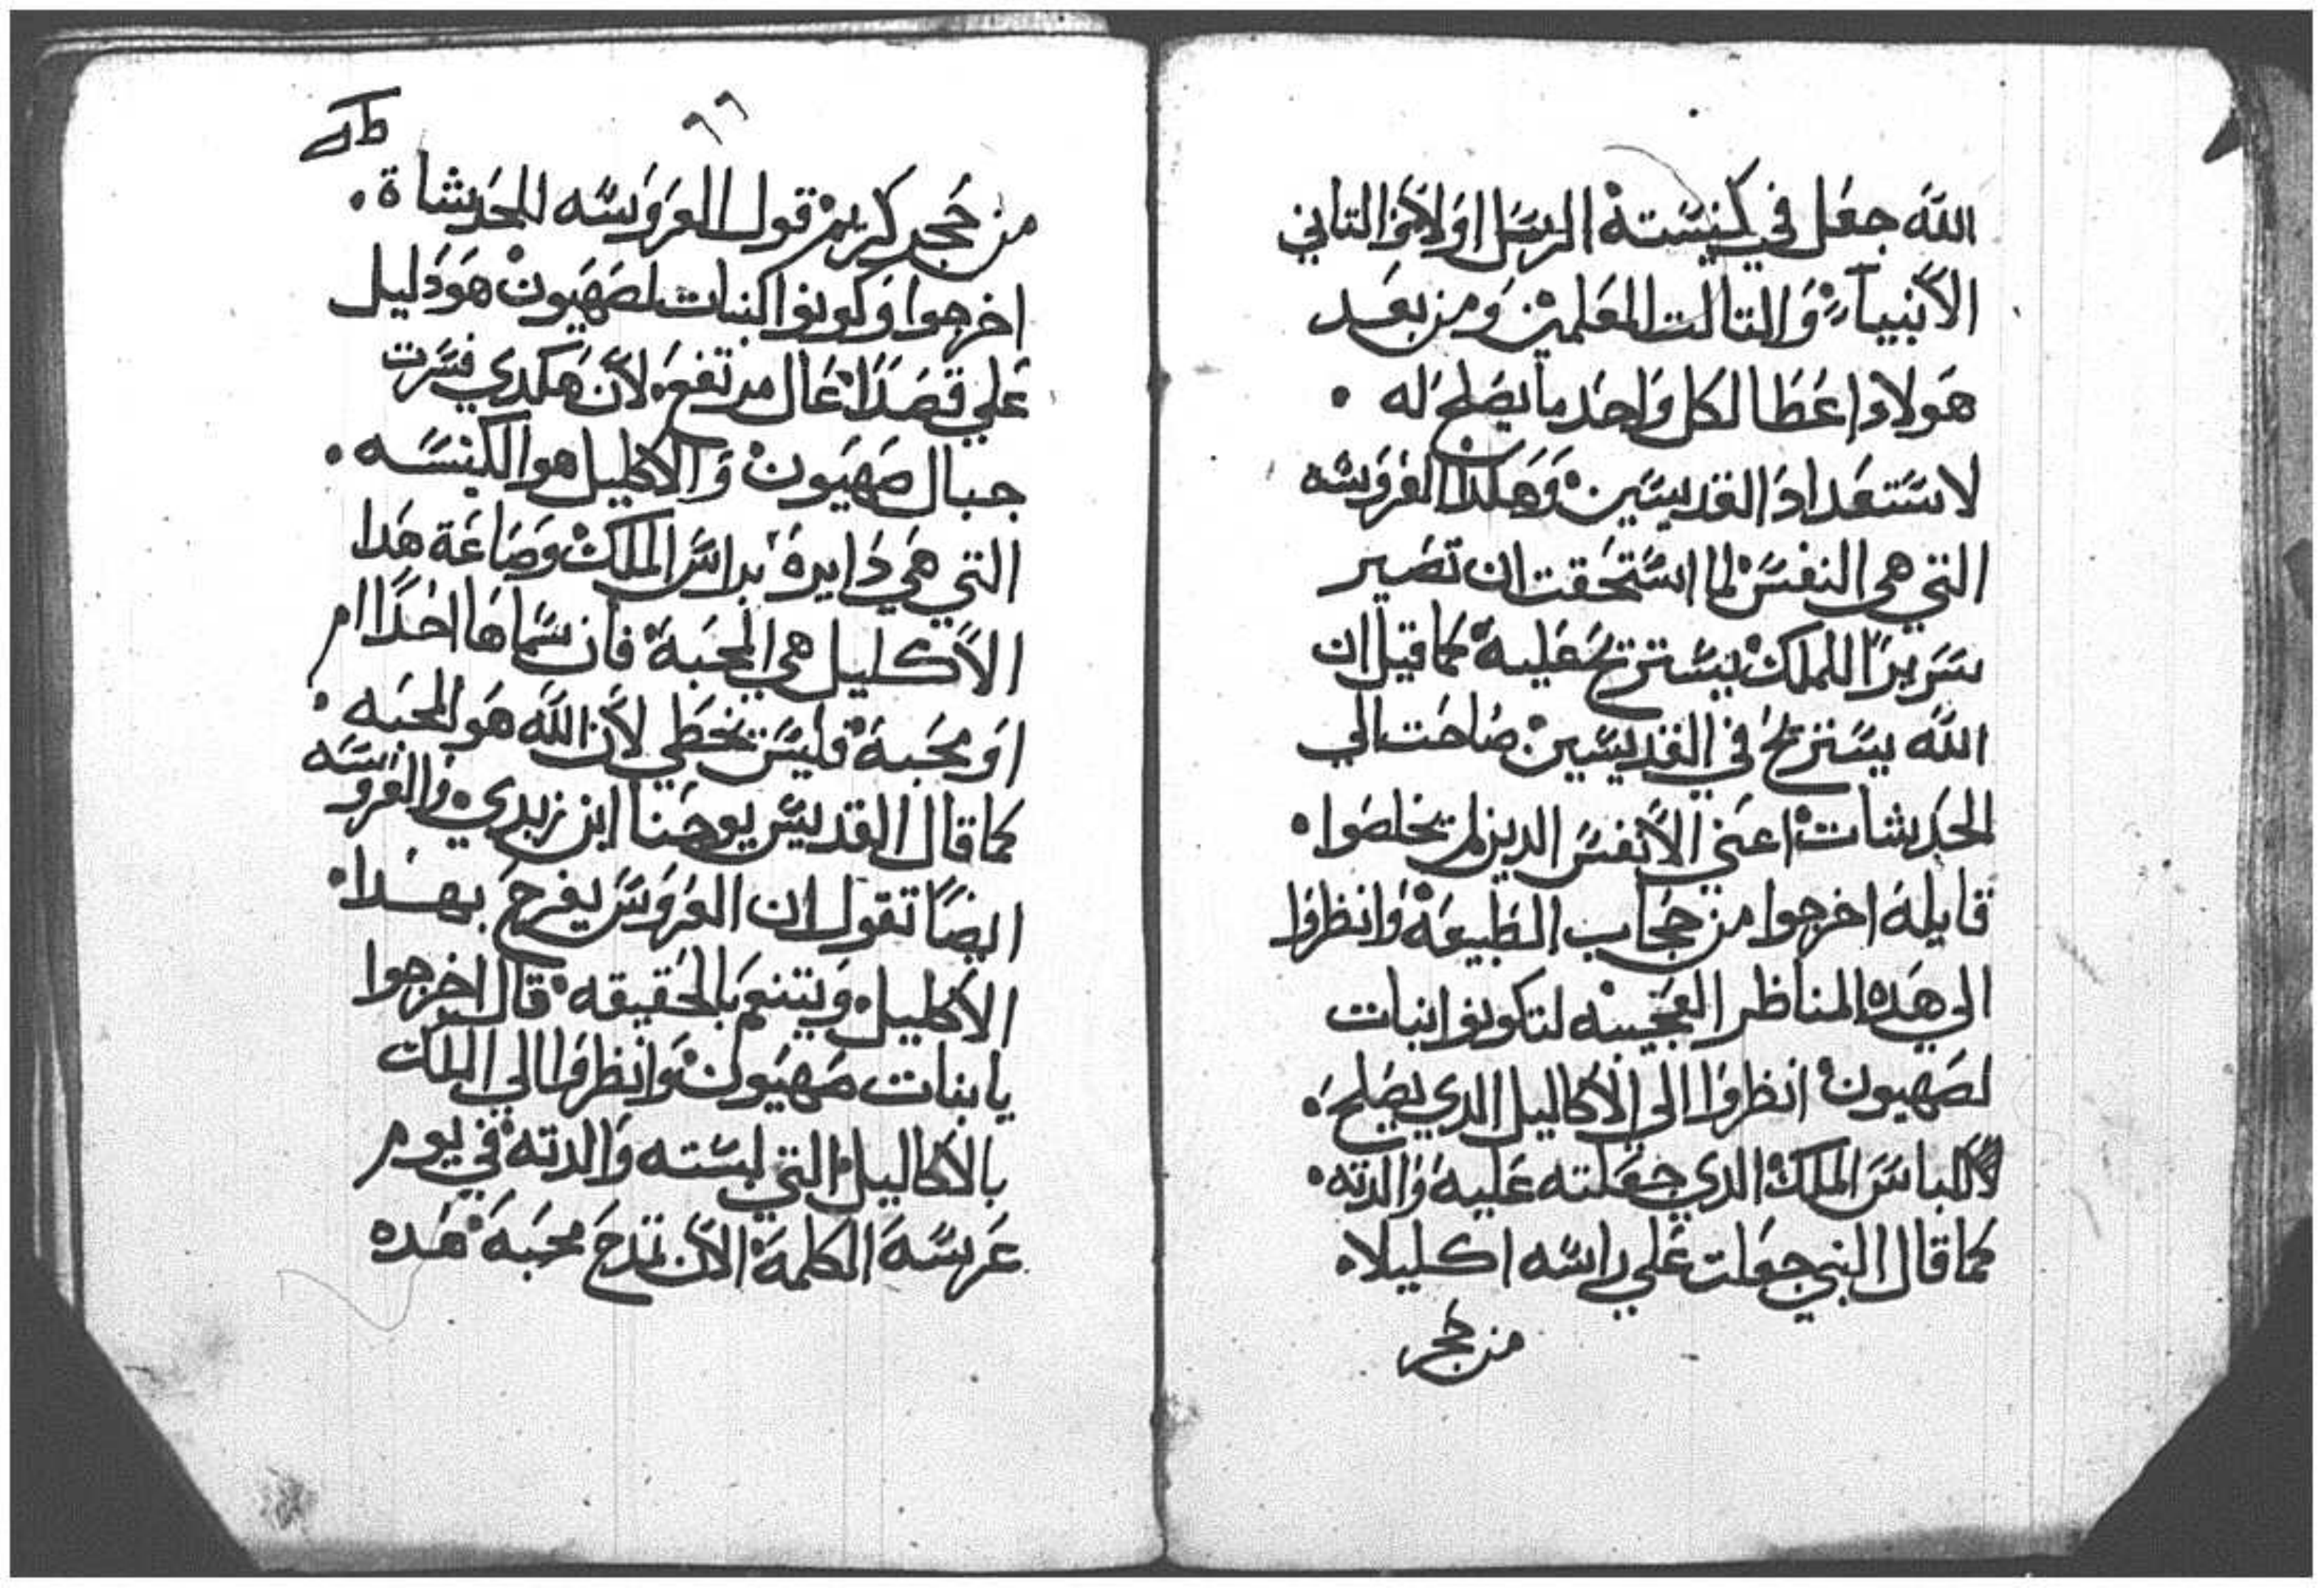 الله جعل في كنيسته الرسل اولا والتاني
الأنبياء والتالت المعلمين ومن بعد
هولاء اعطا لكل واحد ما يصلح له .
لاستعداد القديسين وهكذا العروسه
التي هي النفس لما استحقت ان تصير
سريرا للملك يستريح عليه كما قيل ان
الله يستريح في القديسين صاحت الي
الحديثات اعني الأنفس الدين لم يخلصوا .
قايلة اخرجوا من حجاب الطبيعة وانظروا
الي هده المناظر العجيبه لتكونوا بنات
لصهيون انظروا الي الأكاليل الدي يصلح .
لالباس الملك الدي جعلته عليه والدته .
كما قال النبي جعلت علي راسه اكليلا .
من حجر
٦٦
من حجر كريم قول العروسه للحديثاة .
اخرجوا وكونوا كبنات لصهيون هو دليل
علي قصدا عال مرتفع . لأن هكدي فسرت
جبال صهيون والاكليل هو الكنيسه .
التي هي دايرة براس الملك وصاغة هدا
الأكليل هي المحبة فان سماها احدا ام
او محبة فليس يخطي لأن الله هو المحبه .
كما قال القديس يوحنا ابن زبدي . والعروسه
ايضا تقول ان العروس يفرح بهدا .
الأكليل . ويتنعم بالحقيقه . قال اخرجوا
يا بنات صهيون وانظروا الي الملك
بالاكاليل التي لبسته والدته في يوم
عرسه الكلمة الأن تمدح محبة هده